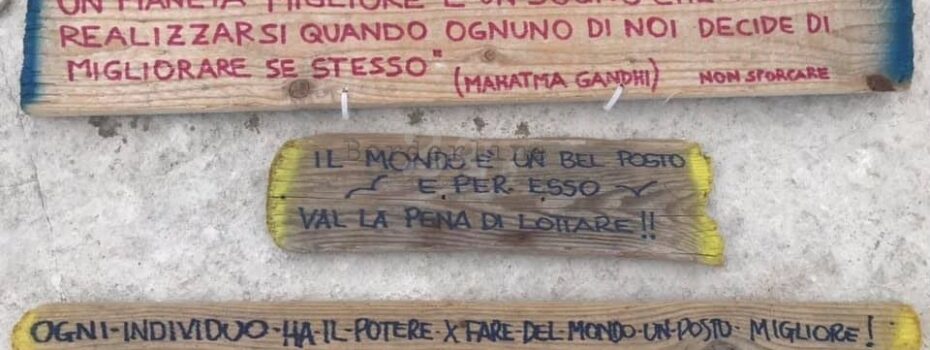 UN PIANETA MIGLIORE È UN SOGNO CHE
REALIZZARSI QUANDO OGNUNO DI NOI DECIDE DI
MIGLIORARE SE STESSO"
(MAHATMA GANDHI) NON SPORCARE
IL MONDO È UN BEL POSTO
E PER ESSO
VAL LA PENA DI LOTTARE!!
OGNI-INDIVIDUO-HA-IL-POTERE-X FARE-DEL-MONDO-UN-POSTO-MIGLIORE!